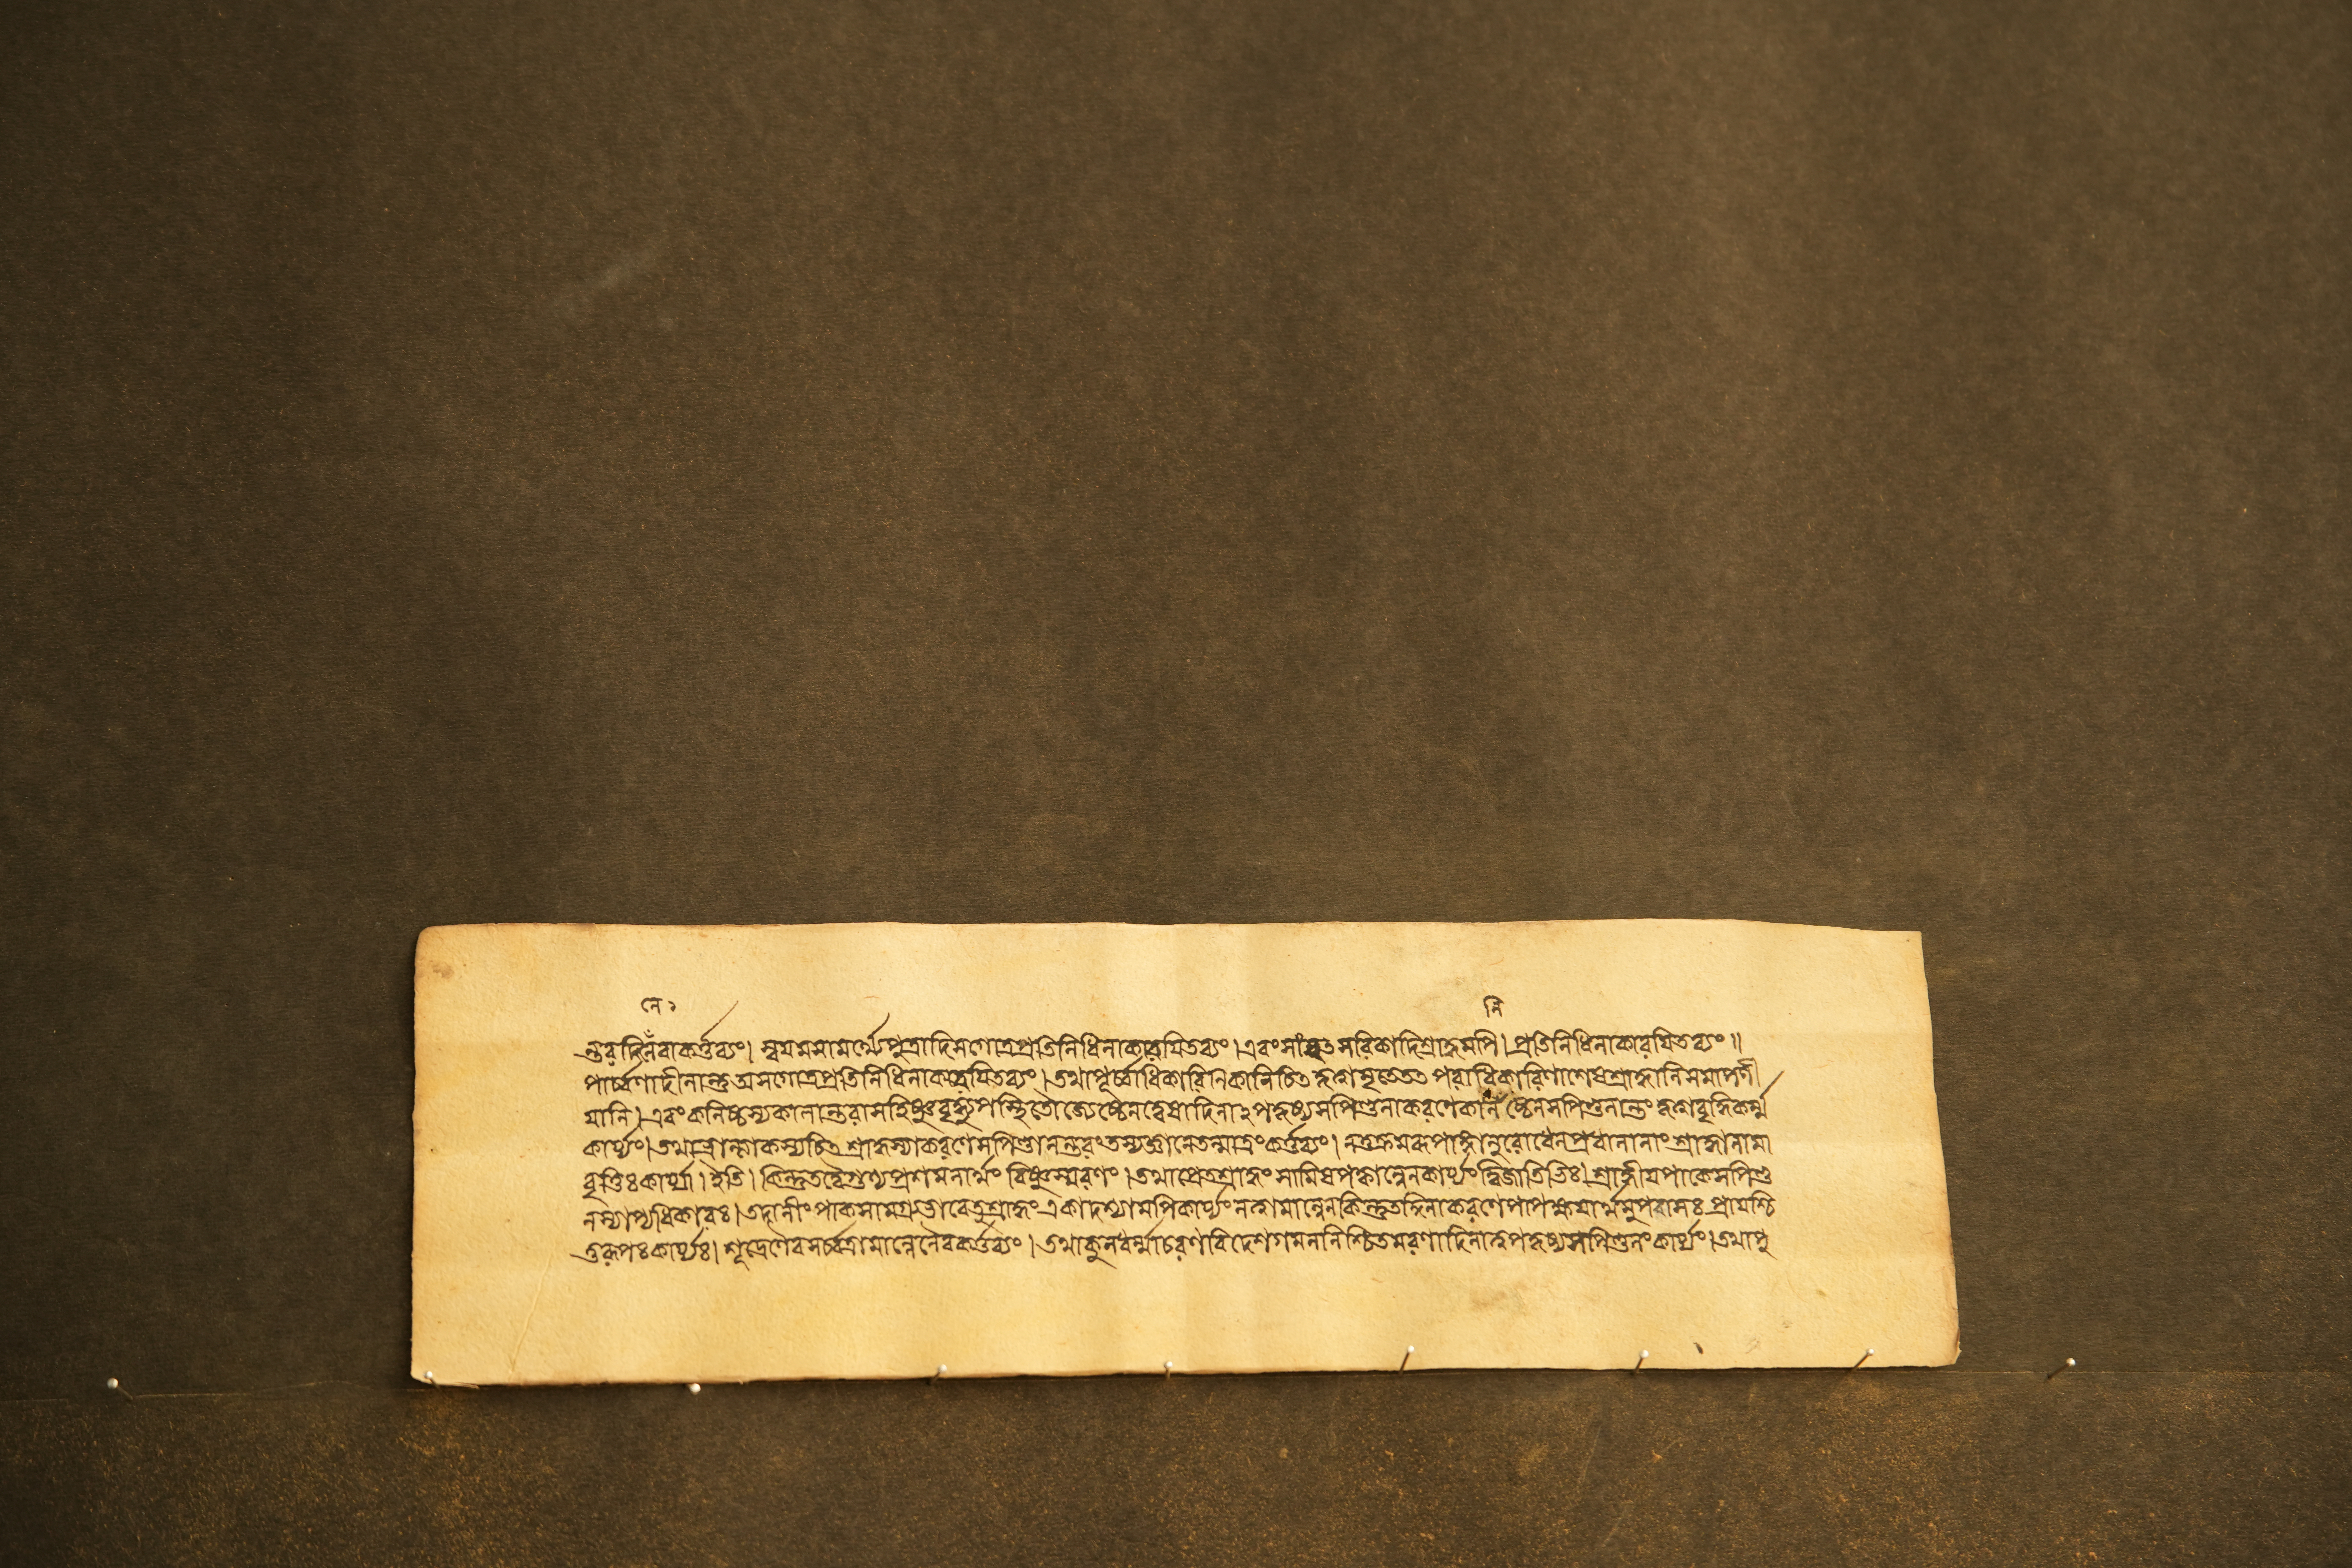 নে ২ নি
ন্তরদিনেঁবাকর্ত্তব্যং। স্বয়মসামর্থ্যেপুত্রাদিসগোত্রপ্রতিনিধিনাকারয়িতব্যং।এবংসাংবৎসরিকাদিশ্রাদ্ধমপি।প্রতিনিধিনাকারয়িতব্যং॥
পার্ব্বণাদীনান্তুঅসগোত্রপ্রতিনিধিনাকারয়িতব্যং।তথাপূর্ব্বাধিকারিন পরাধিকারিণাশেষশ্রাদ্ধানিসমাপণী
য়ানি।এবংকনিষ্ঠস্যকালান্তরাসহিষ্ণুবৃদ্ধ্যুপস্থিতৌজ্যেষ্ঠেনদ্বেষাদিনা সপিণ্ডনাকরণেকনিষ্ঠেনসপিণ্ডনান্তং বৃদ্ধিকর্ম্ম
কার্য্যং।তথা শ্রাদ্ধস্যাকরণেসপিণ্ডানন্তরংতস্যজ্ঞানেতন্মাত্রংকর্ত্তব্যং। প্রধানানাংশ্রাদ্ধানামা
বৃত্তিঃকার্য্যা।ইতি।কিন্তুতদ্বৈগুণ্যপ্রশমনার্থং বিষ্ণুস্মরণং।তথাপ্রেতশ্রাদ্ধং সামিষপক্কান্নেনকার্য্যংদ্বিজাতিভিঃ।শ্রাদ্ধীয়পাকেসপিণ্ড
নস্যাপ্যধিকারঃ।তদানীংপাকসামগ্র্যভাবেতুশ্রাদ্ধংএকাদশ্যামপিকার্য্যংনত্বামান্নেনকিন্তুতদ্দিনাকরণেপাপক্ষয়ার্থমুপবাসঃপ্রায়শ্চি
ত্তরূপঃকার্য্যঃ।শূদ্রেণৈবসর্ব্বত্রামান্নেনৈবকর্ত্তব্যং।তথাকুলধর্ম্মাচরণবিদেশগমননিশ্চিতমরণাদিনা সপিণ্ডনংকার্য্যং।তথাপু